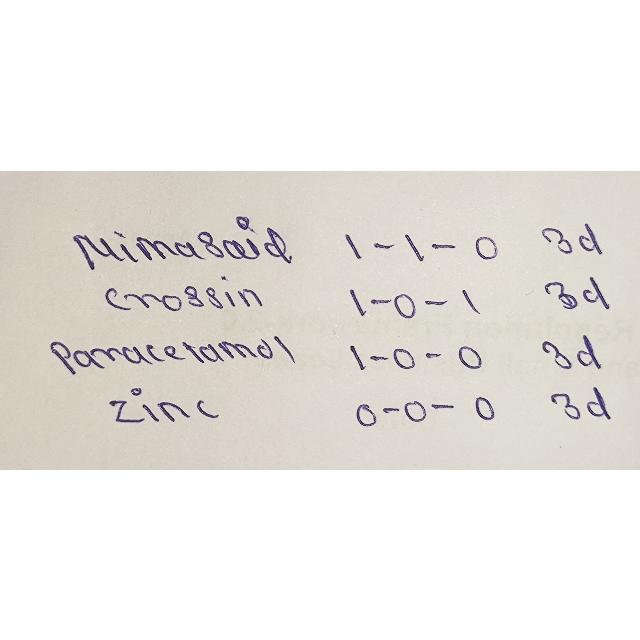 Nimasaid 1-1-0 3d
crossin 1-0-1 3d
Paracetamol 1-0-0 3d
zinc 0-0-0 3d